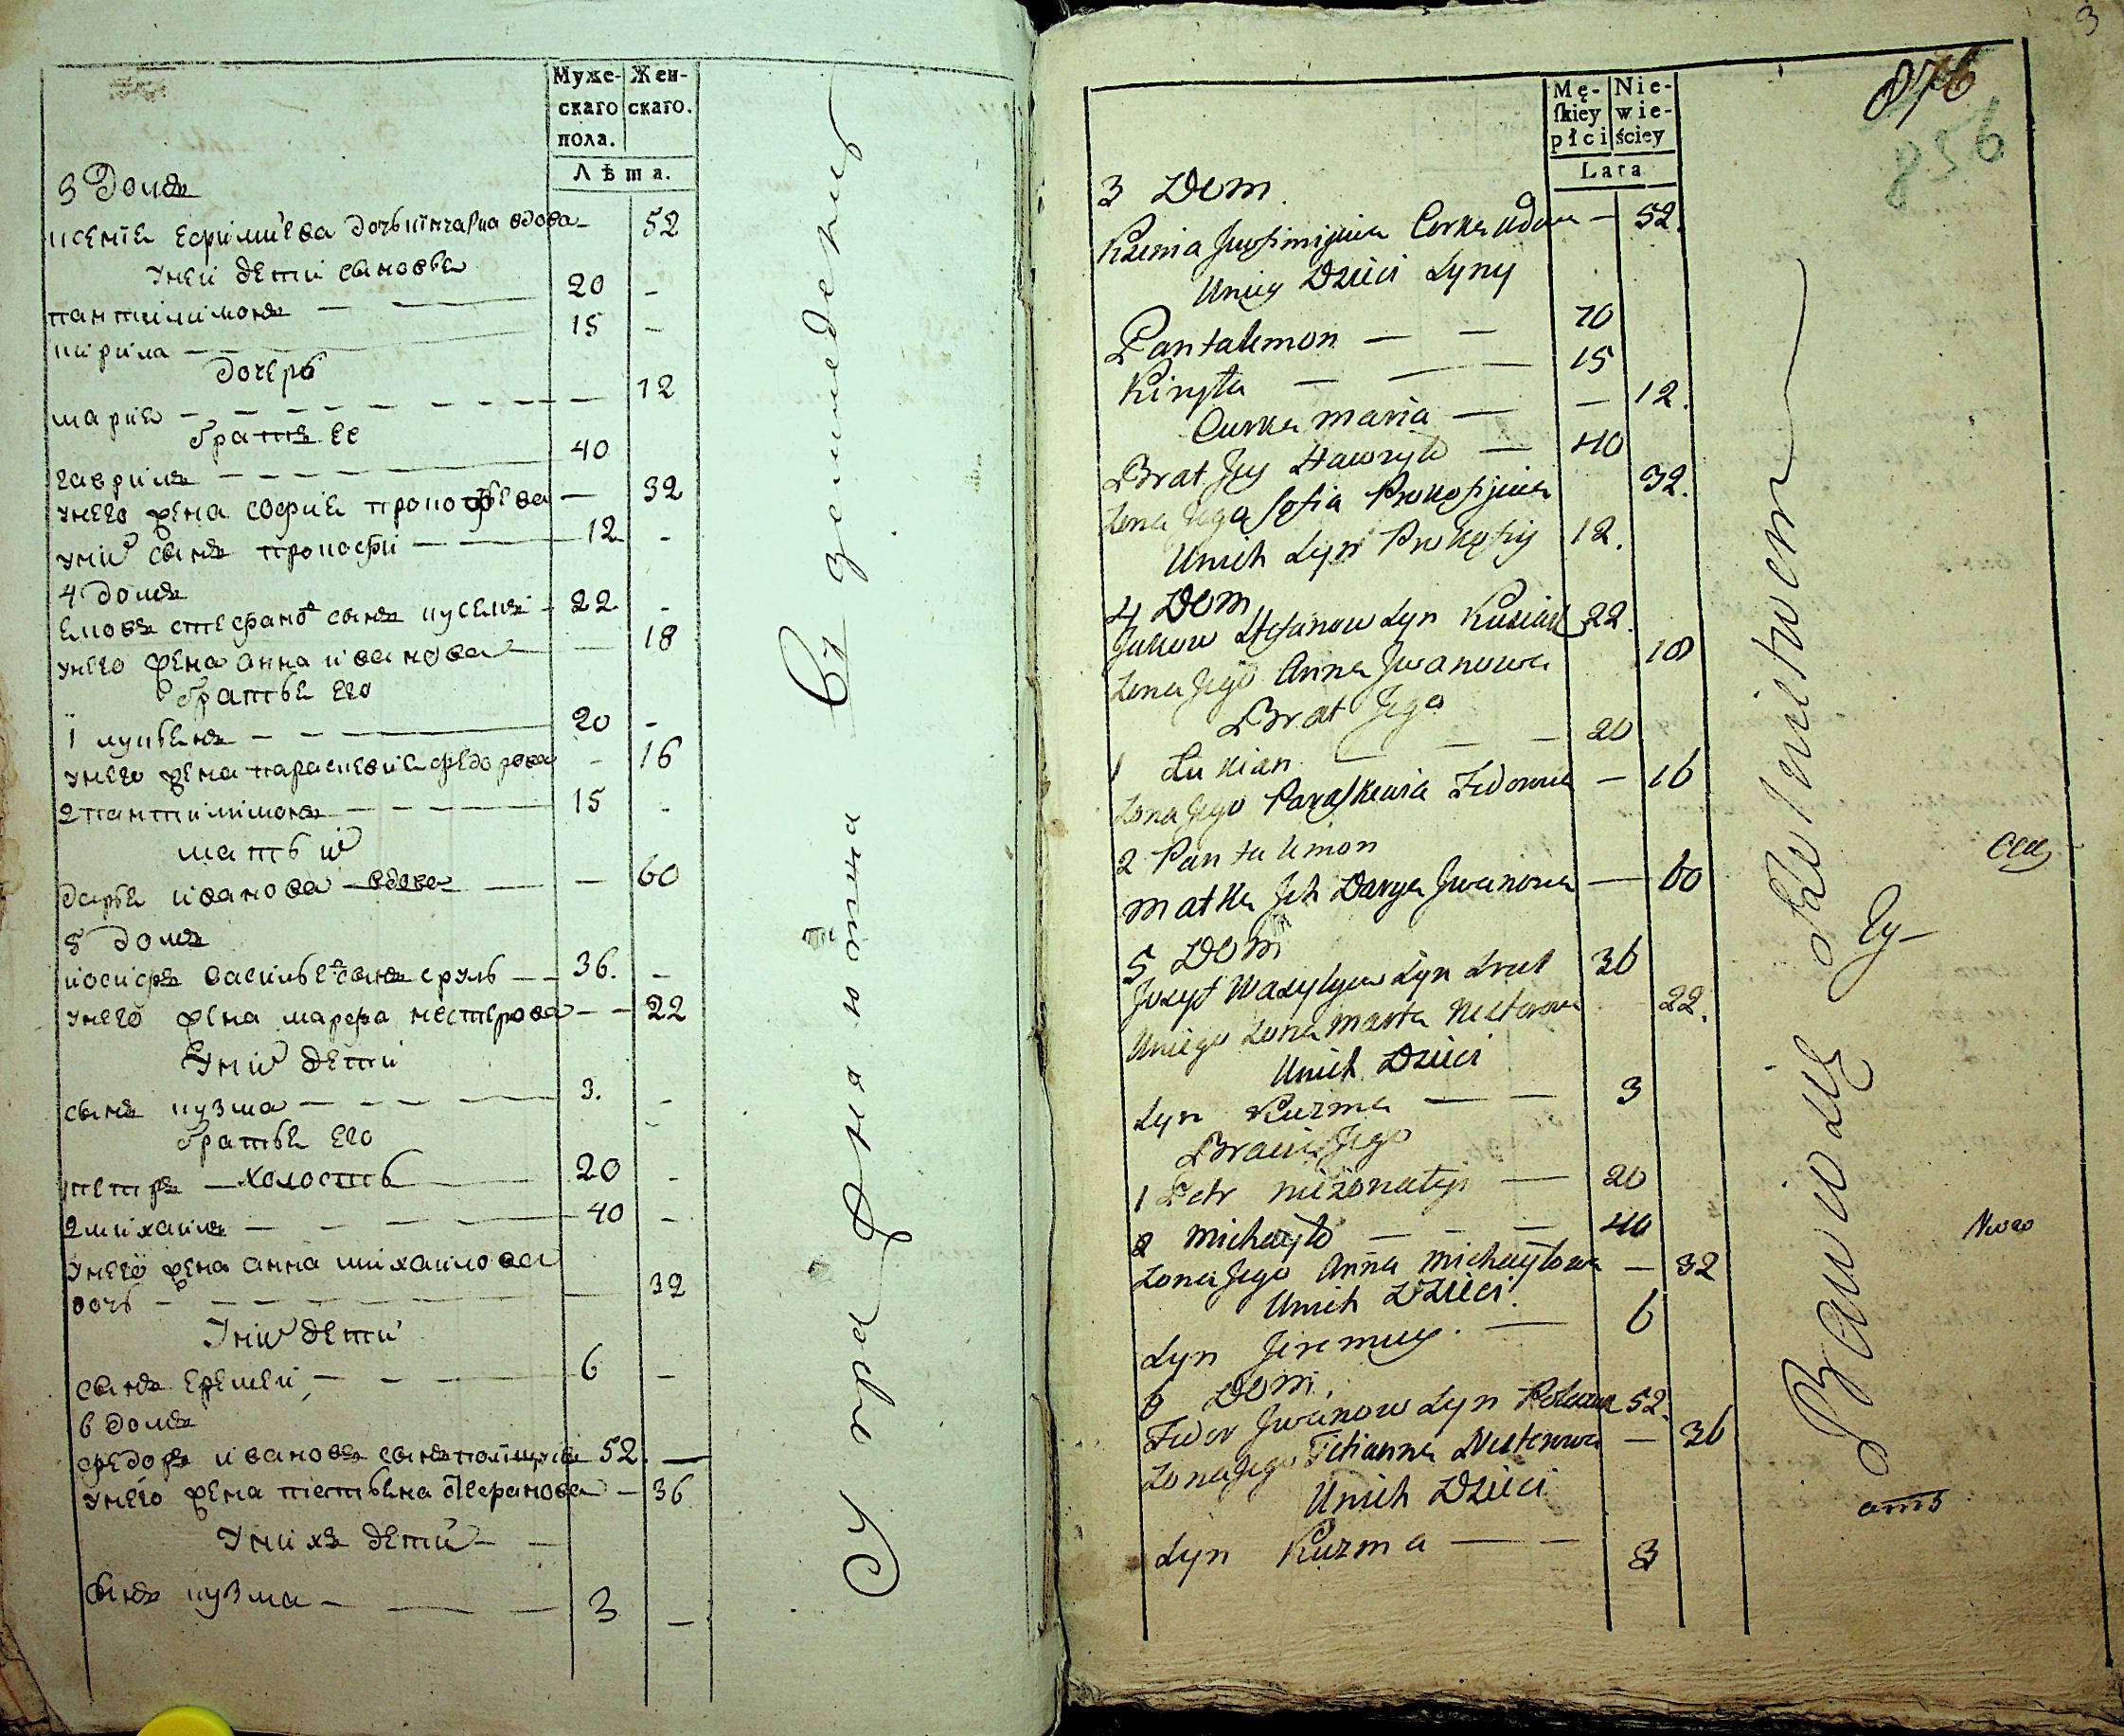 Муже-
скаго
пола.
Жен-
скаго.
Лѣта.
3 Домъ
ксенїе ефимиева дочь вдова — 52
унеи дети сыновье
пантилимонъ — — 20 -
кирила — 15 -
дочерь
марие — — — — — 12
братъ ее
гаврилъ — — — — 40
унего жена софие прокофьева — 32
уних сынъ прокофи — 12 -
4 домъ
стефановъ сынъ — 22 -
унего жена анна иванова — 18
братье его
1 лукьянъ — — — 20 -
унего жена параскевие федорова - 16
2 пантилимонъ — — — 15 -
мать их
дарье иванова вдова — — 60
5 домъ
иосифъ василье сынъ сруль — 36. -
унего жена марфа нестерова — — 22
Уних дети
сынъ кузма — — — 3. -
братье его
петръ — холостъ 20 -
2 михаилъ — — — 40 -
унего жена анна михаилова
дочь — — — — 32
Уних дети
сынъ еремеи — — — 6 -
6 домъ
федоръ ивановъ сынъ 52. —
унего жена татьена — 36
Унихъ дети — —
сынъ кузма — — — 3 —
Супражнѧютца
Су земледением
3
876
856
Mę-
ſkiey
płci
Nie-
wie-
ściey
Lata
3 Dom
Kzenia Corka Wdowa — 52.
Uniey Dzieci Syny
Pantalemon — — 20
Kiryła — — 15
Curka maria — — 12.
Brat Jey Hawryło — 40
Zona Jego Sofia Prokofijewa 32.
Unich Syn Prokofiy 12.
4 Dom
Jakow Stefanow Syn 22.
Zona Jego Anna Jwanowa 18
Brat Jego
1 Lukian — — 20
Zona Jego Paraſkewia Fedorowa — 16
2 Pantalimon
matka Jch Darya Jwanowa — 60
5 Dom
Jozyf Wasylyew Syn Srul 36
Uniego Zona marta Nestorowa 22.
Unich Dzieci
Syn Kuzma — — 3
Bracia Jego
1 Petr niżonatyi — 20
2 michayło — — — 40
Zona Jego Anna michayłowa — 32
Unich Dzieci.
Syn Jeremiey. — 6
6 Dom
Fedor Jwanow Syn 52.
Zona Jego Tetianna — 36
Unich Dzieci
Syn Kuzma — — 3
Bawio się